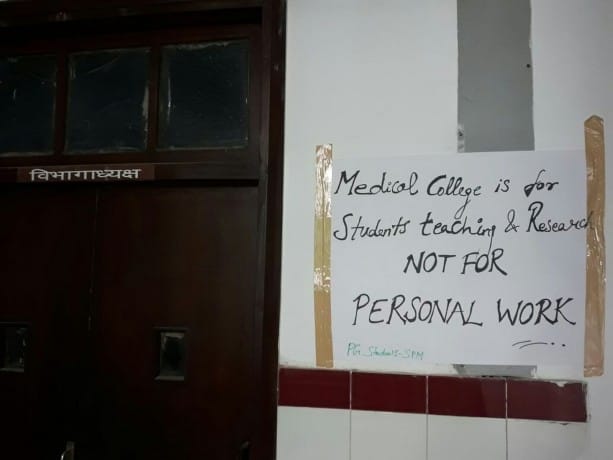 विभागाध्यक्ष
Medical College is for
Students teaching & Research
NOT FOR
PERSONAL WORK
PG Students-SPM